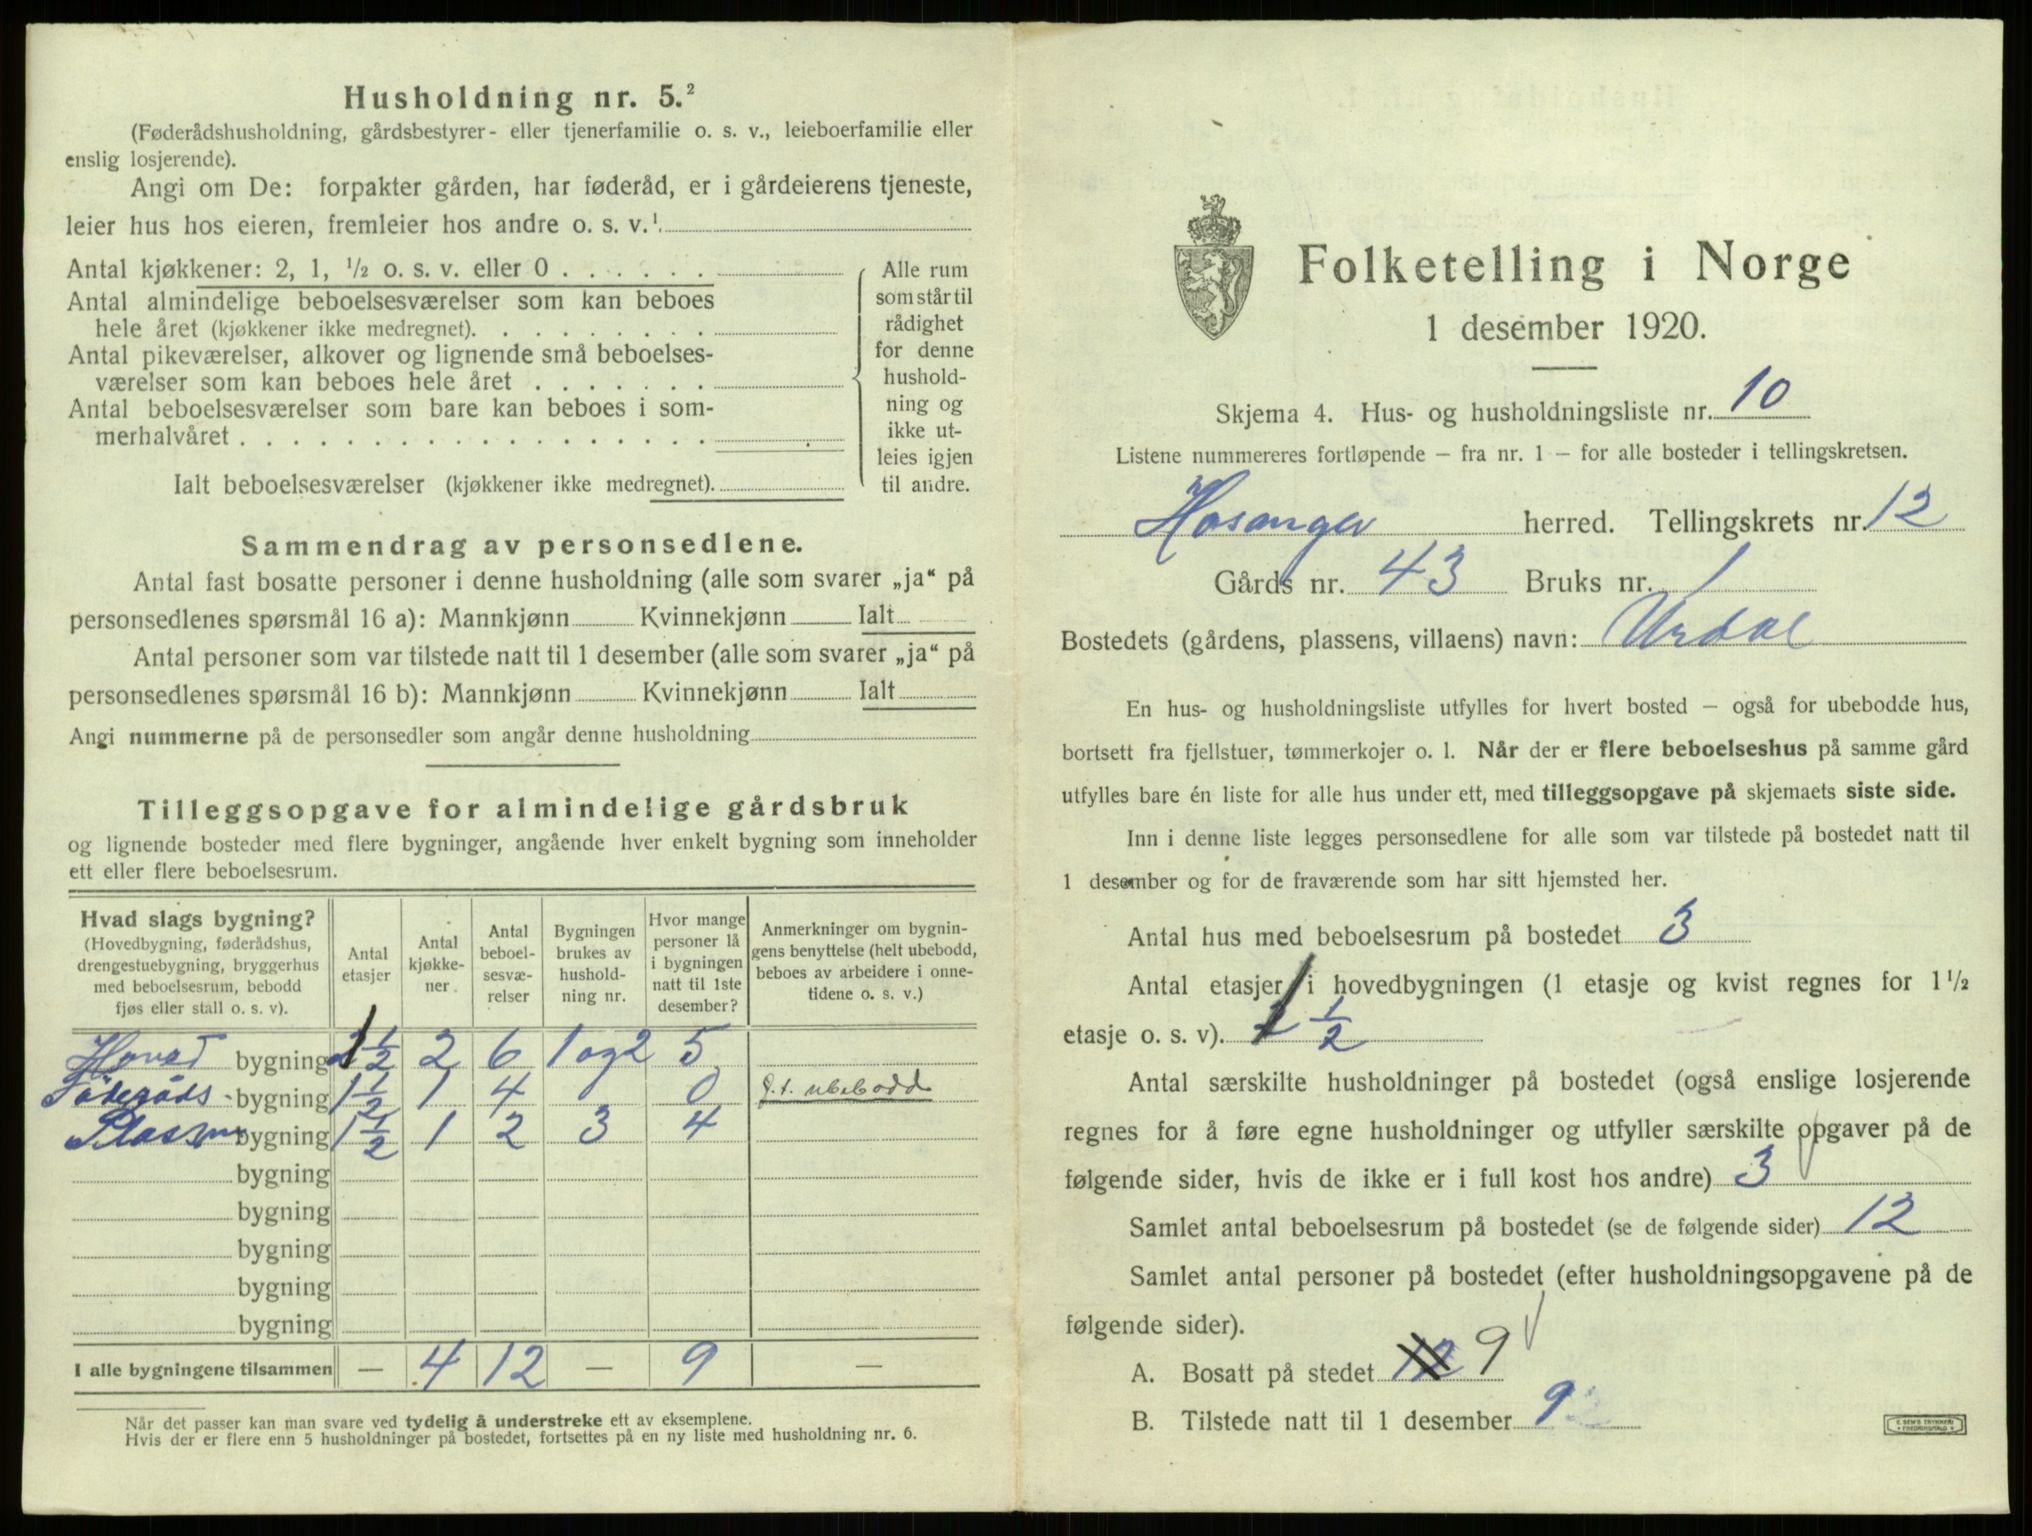 Husholdning nr. 5.²
(Føderådshusholdning, gårdsbestyrer- eller tjenerfamilie o. s. v., leieboerfamilie eller
enslig losjerende).
Angi om De: forpakter gården, har føderåd, er i gårdeierens tjeneste,
leier hus hos eieren, fremleier hos andre o. s. v.¹
Antal kjøkkener: 2, 1, ½ o. s. v. eller 0 . . . . . .
Antal almindelige beboelsesværelser som kan beboes
hele året (kjøkkener ikke medregnet). . . . . . . . .
Antal pikeværelser, alkover og lignende små beboelses-
værelser som kan beboes hele året . . . . . . .
Antal beboelsesværelser som bare kan beboes i som-
merhalvåret . . . . . . . . . . . . . . . . . .
Ialt beboelsesværelser (kjøkkener ikke medregnet).
Alle rum
som står til
rådighet
for denne
hushold-
ning og
ikke ut-
leies igjen
til andre.
Sammendrag av personsedlene.
Antal fast bosatte personer i denne husholdning (alle som svarer „ja“ på
personsedlenes spørsmål 16 a): Mannkjønn Kvinnekjønn Ialt
Antal personer som var tilstede natt til 1 desember (alle som svarer „ja“ på
personsedlenes spørsmål 16 b): Mannkjønn Kvinnekjønn Ialt
Angi nummerne på de personsedler som angår denne husholdning
Tilleggsopgave for almindelige gårdsbruk
og lignende bosteder med flere bygninger, angående hver enkelt bygning som inneholder
ett eller flere beboelsesrum.
Hvad slags bygning?
(Hovedbygning, føderådshus,
drengestuebygning, bryggerhus
med beboelsesrum, bebodd
fjøs eller stall o. s. v).
Antal
etasjer
Antal
kjøkke-
ner.
Antal
beboel-
sesvæ-
relser
Bygningen
brukes av
hushold-
ning nr.
Hvor mange
personer lå
i bygningen
natt til 1ste
desember?
Anmerkninger om bygnin-
gens benyttelse (helt ubebodd,
beboes av arbeidere i onne-
tidene o. s. v.)
Hoved bygning 1½ 2 6 1 og 2 5
Føderåds- bygning 1½ 1 4 0 f. t. ubebodd
bygning 1½ 1 2 3 4
bygning
bygning
bygning
bygning
bygning
I alle bygningene tilsammen — 4 12 — 9 —
Når det passer kan man svare ved tydelig å understreke ett av eksemplene.
Hvis der er flere enn 5 husholdninger på bostedet, fortsettes på en ny liste med husholdning nr. 6.
Folketelling i Norge
1 desember 1920.
Skjema 4. Hus- og husholdningsliste nr. 10
Listene nummereres fortløpende — fra nr. 1 — for alle bosteder i tellingskretsen.
Hosanger herred. Tellingskrets nr. 12
Gårds nr. 43 Bruks nr. 1
Bostedets (gårdens, plassens, villaens) navn: Urdal
En hus- og husholdningsliste utfylles for hvert bosted — også for ubebodde hus,
bortsett fra fjellstuer, tømmerkojer o. l. Når der er flere beboelseshus på samme gård
utfylles bare én liste for alle hus under ett, med tilleggsopgave på skjemaets siste side.
Inn i denne liste legges personsedlene for alle som var tilstede på bostedet natt til
1 desember og for de fraværende som har sitt hjemsted her.
Antal hus med beboelsesrum på bostedet 3
Antal etasjer i hovedbygningen (1 etasje og kvist regnes for 1½
etasje o. s. v). 1½
Antal særskilte husholdninger på bostedet (også enslige losjerende
regnes for å føre egne husholdninger og utfyller særskilte opgaver på de
følgende sider, hvis de ikke er i full kost hos andre) 3
Samlet antal beboelsesrum på bostedet (se de følgende sider) 12
Samlet antal personer på bostedet (efter husholdningsopgavene på de
følgende sider).
A. Bosatt på stedet 12 9
B. Tilstede natt til 1 desember 9